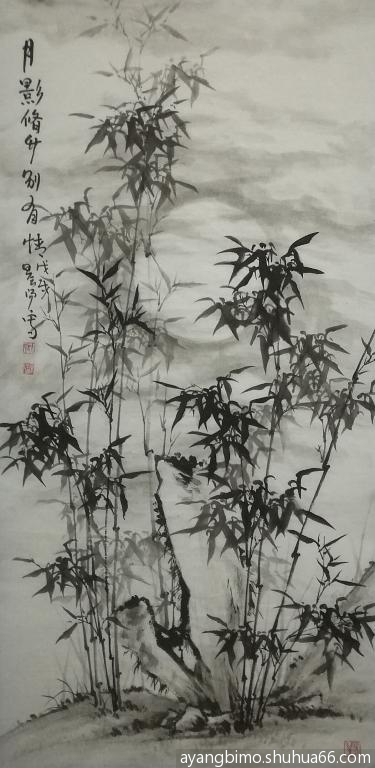 月影脩竹别有情
戊戌
ayangbimo.shuhua66.com